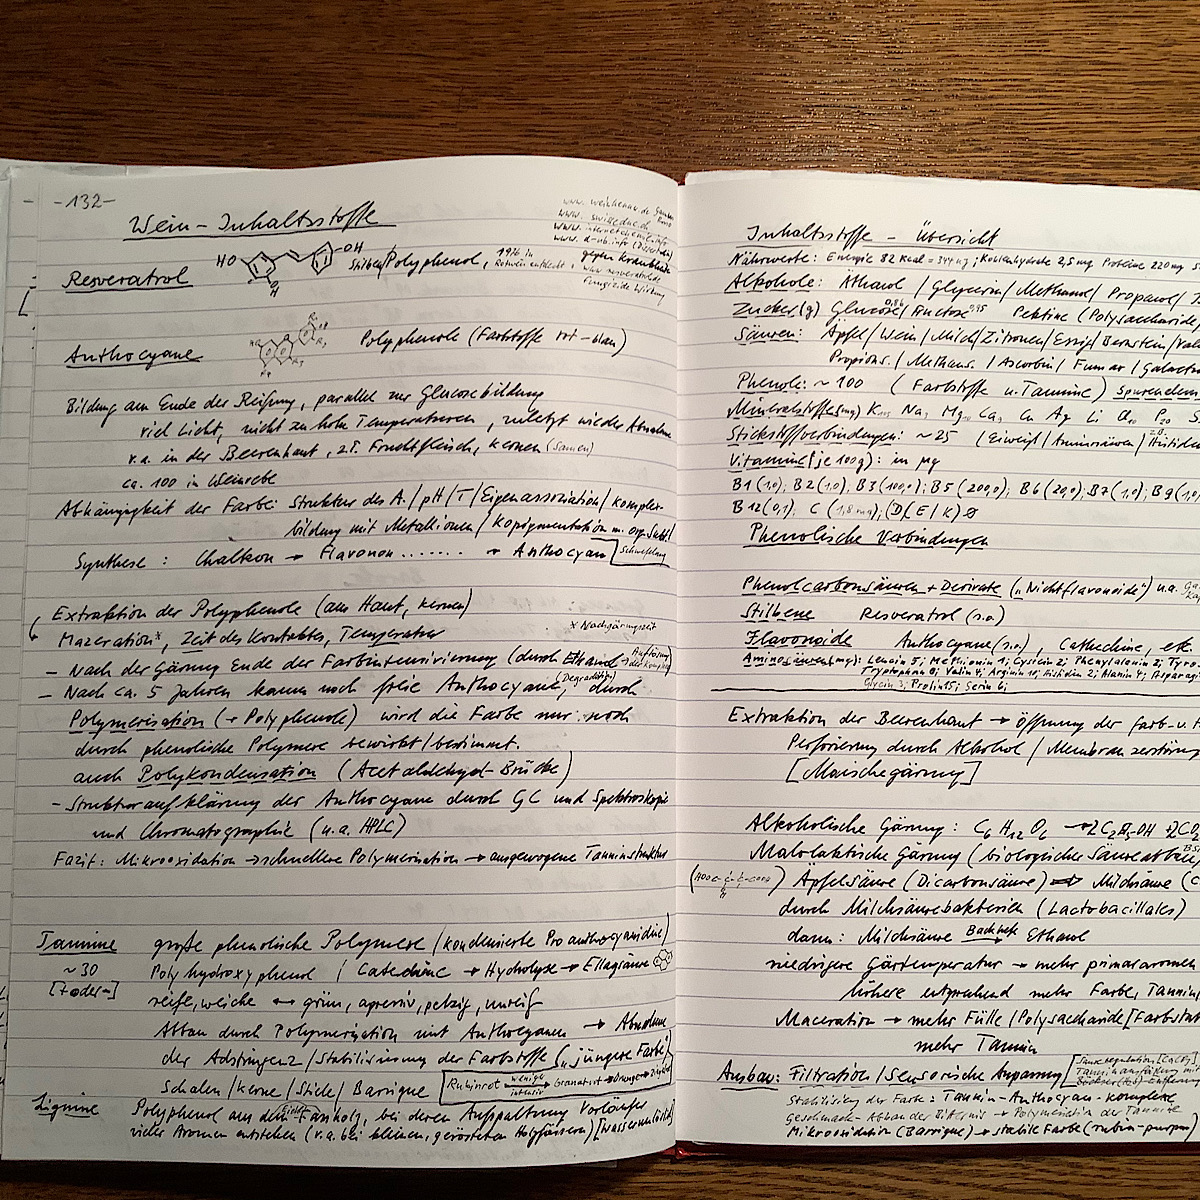 -132-
Wein-Inhaltsstoffe
www. weinkenner.de
www. swisseduc.ch
www. internetchemie.info
www. d-nb.info (Dissertation)
Resveratrol
HO OH
OH
Stilben/Polyphenol,
gegen Krankheiten
www.resveratrol.de
Fungizide Wirkung
Anthocyane
Polyphenole (Farbstoffe rot-blau)
Bildung am Ende der Reifung, parallel zur Glucosebildung
viel Licht, nicht zu hohe Temperaturen, zuletzt wieder Abnahme
v.a. in der Beerenhaut, z.T. Fruchtfleisch, Kernen (Samen)
ca. 100 in Weinrebe
Abhängigkeit der Farbe: Struktur des A./pH/T/Eigenassoziation/Komplex-
bildung mit Metallionen/Kopigmentation m. org. Subst
Synthese: Chalkon → Flavonon ....... → Anthocyan [Schwefelung
Extraktion der Polyphenole (aus Haut, Kernen)
Mazeration*, Zeit des Kontaktes, Temperatur
* Nachgärungszeit
- Nach der Gärung Ende der Farbintensivierung (durch Ethanol → Auflösung der Komplexe)
- Nach ca. 5 Jahren kaum noch freie Anthocyane, (Degradation) durch
Polymerisation (→ Polyphenole) wird die Farbe nur noch
durch phenolische Polymere bewirkt/bestimmt.
auch Polykondensation (Acetaldehyd-Brücke)
- Strukturaufklärung der Anthocyane durch GC und Spektroskopie
und Chromatographie (u.a. HPLC)
Fazit: Mikrooxidation → schnellere Polymerisation → ausgewogene Tanninstruktur
Tannine große phenolische Polymere (kondensierte Proanthocyanidine)
~30 Polyhydroxyphenol / Catechine → Hydrolyse → Ellagsäure
[+ oder -] reife, weiche ↔ grün, agressiv, pelzig, unreif
Abbau durch Polymerisation mit Anthocyanen → Abnahme
der Adstringenz/Stabilisierung der Farbstoffe („jüngere Farbe")
Schalen/Kerne/Stiele/Barrique [Rubinrot → weniger intensiv Granatrot → Orange → Ziegelrot
Lignine Polyphenol aus dem Eichen-Fassholz, bei deren Aufspaltung Vorläufer
vieler Aromen entstehen (v.a. bei kleinen, gerösteten Holzfässern) [wasserunlöslich]
Inhaltsstoffe - Übersicht
Nährwerte: Energie 82 kcal = 344 kJ; Kohlenhydrate 2,5mg Proteine 220mg
Alkohole: Äthanol / Glycerin / Methanol / Propanol /
Zucker (g) Glucose 0,86 / Fructose 0,95 Pektine (Polysaccharide
Säuren: Äpfel/Wein/Milch/Zitronen/Essig/Bernstein/Vale
Propions. / Methans. / Ascorbin / Fumar / Galactu
Phenole: ~100 (Farbstoffe u. Tannine) Spurenelem
Mineralstoffe (mg)
Stickstoffverbindungen: ~25 (Eiweiß/Aminosäuren/ z.B. Histidin
Vitamine (je 100g): in µg
B1 (1,0); B2 (1,0), B3 (100,0); B5 (200,0); B6 (20,0); B7 (1,0); B9 (1,0
B12 (0,1); C (1,8 mg); (D/E/K) Ø
Phenolische Verbindungen
Phenolcarbonsäuren + Derivate („Nichtflavonoide") u.a.
Stilbene Resveratrol (s.o.)
Flavonoide Anthocyane (s.o.), Cathechine, etc.
Aminosäuren (mg): Leucin 5; Methionin 1; Cystein 2; Phenylalanin 2; Tyro
Tryptophan 0; Valin 4; Arginin 10; Histidin 2; Alanin 4; Asparagi
Glycin 3; Prolin 15; Serin 6;
Extraktion der Beerenhaut → Öffnung der Farb- u.
Perforierung durch Alkohol / Membranzerstörung
[Maischegärung]
Alkoholische Gärung: C6 H12 O6 → 2C2H5-OH + 2CO2
Malolaktische Gärung (biologischer Säureabbau
Äpfelsäure (Dicarbonsäure) ⇒ Milchsäure (
durch Milchsäurebakterien (Lactobacillales)
dann: Milchsäure Backhefe → Ethanol
niedrigere Gärtemperatur → mehr Primäraromen
höhere entsprechend mehr Farbe, Tannin
Maceration → mehr Fülle/Polysaccharide [Farbstab
mehr Tannin
Ausbau: Filtration / Sensorische Anpassung [Säureregulation [CaCO3]
Tanninausfällung mit
Stabilisierung der Farbe: Tannin-Anthocyan-Komplexe
Geschmack-Abbau der Bitternis → Polymerisation der Tannine
Mikrooxidation (Barrique) → stabile Farbe (rubin-purpur)